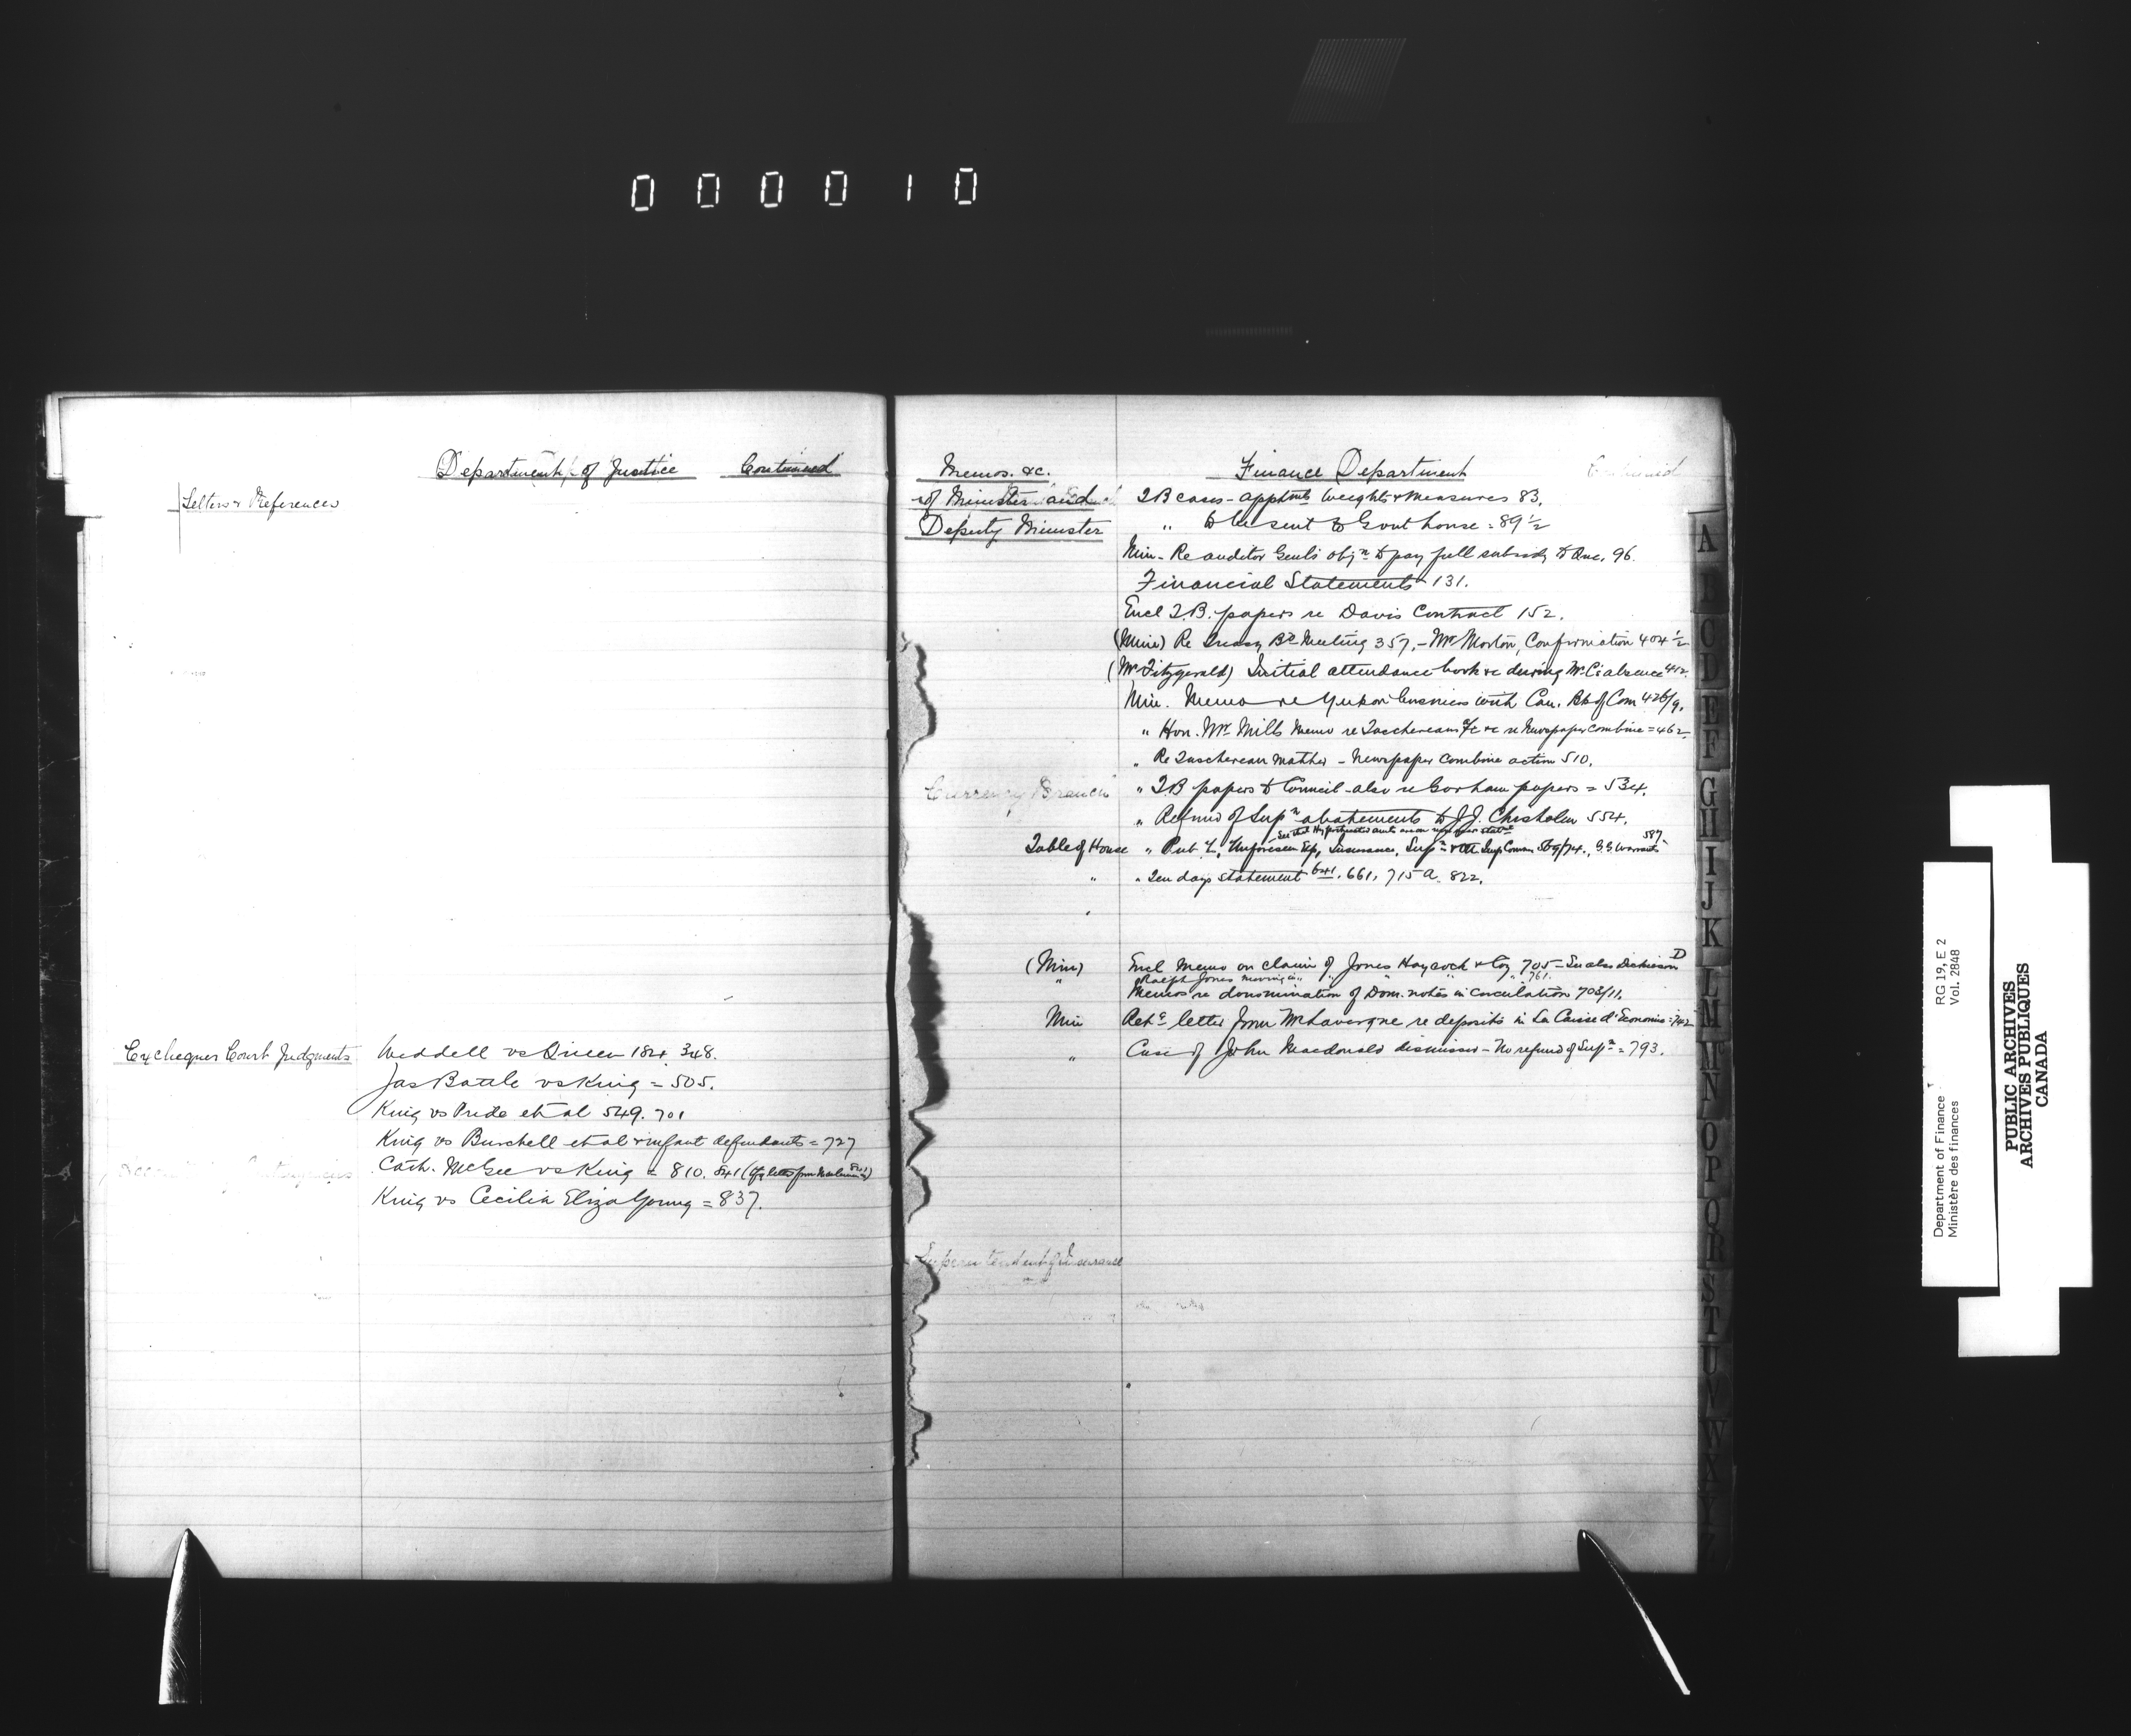 000010
Department of Justice Continued
Letters & References
Exchequer Court Judgments
Weddell vs Queen 182 348.
Jas Battle vs King = 505.
King vs Pride et al 549. 701
King vs Burchell et al & infant defendants = 727
Cath. McGee vs King = 810. 841
King vs Cecilia Eliza Young = 837.
Memos. &c.
of Minister and
Deputy Minister
Finance Department
Continued
T B cases - apptmts Weights & Measures 83.
" to be sent to Govt house = 89½
Min - Re auditor Genl's objn to pay full subsidy to Que. 96.
Financial Statements 131.
Encl T.B. papers re Davis Contract 152.
(Mins) Re Treasy Bd Meeting 357, - Mr Morton, Confirmation 404½
(Mr Fitzgerald) Initial attendance book &c during Mr C's absence 412.
Min. Memo re Yukon business with Can. Bk of Com 426/9.
" Hon. Mr Mills Memo re Taschereau a/c &c re Newspaper combine = 462
" Re Taschereau matter - Newspaper combine action 510.
Currency Branch
" T.B papers to Council - also re Gorham papers = 534.
" Refund of Supn abatements to J.J. Chisholm 554.
Table of House " Unforeseen Exp, Insurance, Supn 569/74., G.G Warrants 587
" " Ten days statement 641. 661, 715a. 822.
(Min) Encl Memo on claim of Jones Haycock & Coy 705 - See also Dickieson D
" Ralph Jones " 761.
Memos re denomination of Dom. notes in circulation 708/11.
Min Retg letter from Mr Lavergne re deposits in La Caisse d'Economie = 742
" Case of John Macdonald dismissed - No refund of Supn = 793.
Superintendent of Insurance
A
B
C
D
E
F
G
H
I
J
K
L
M
Mc
N
O
P
Q
R
S
T
U
V
W
X
Y
Z
Department of Finance RG 19, E 2
Ministère des finances Vol. 2848
PUBLIC ARCHIVES
ARCHIVES PUBLIQUES
CANADA